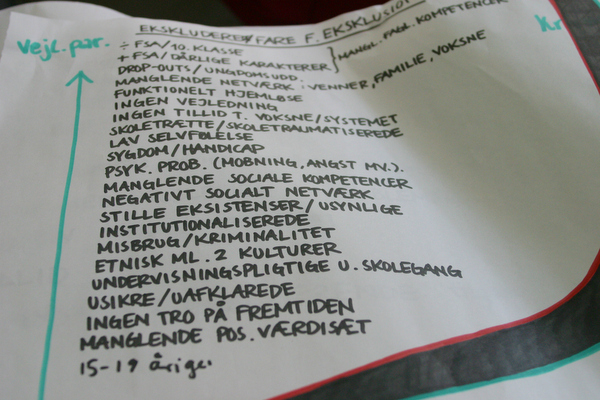 EKSKLUDEREDE/FARE F. EKSKLUSION
Vejl.par.
÷ FSA/10. KLASSE
+ FSA/DÅRLIGE KARAKTERER } MANGL. FAGL. KOMPETENCER
DROP-OUTS/UNGDOMSUDD.
MANGLENDE NETVÆRK : VENNER, FAMILIE, VOKSNE
FUNKTIONELT HJEMLØSE
INGEN VEJLEDNING
INGEN TILLID T. VOKSNE/SYSTEMET
SKOLETRÆTTE/SKOLETRAUMATISEREDE
LAV SELVFØLELSE
SYGDOM/HANDICAP
PSYK. PROB. (MOBNING, ANGST MV.).
MANGLENDE SOCIALE KOMPETENCER
NEGATIVT SOCIALT NETVÆRK
STILLE EKSISTENSER/USYNLIGE
INSTITUTIONALISEREDE
MISBRUG/KRIMINALITET
ETNISK ML. 2 KULTURER
UNDERVISNINGSPLIGTIGE U. SKOLEGANG
USIKRE/UAFKLAREDE
INGEN TRO PÅ FREMTIDEN
MANGLENDE POS. VÆRDISÆT
15-19 årige.